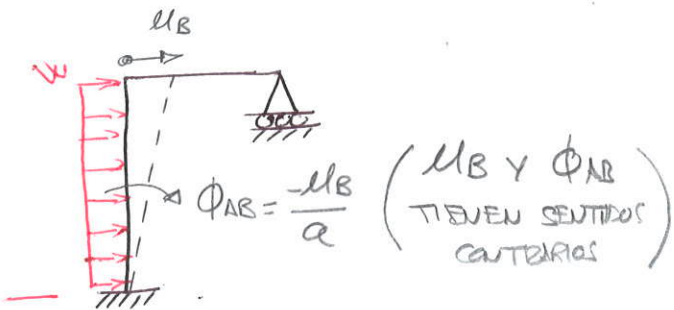 μB
w
ϕAB = -μB/a (μB Y ϕAB
TIENEN SENTIDOS
CONTRARIOS)